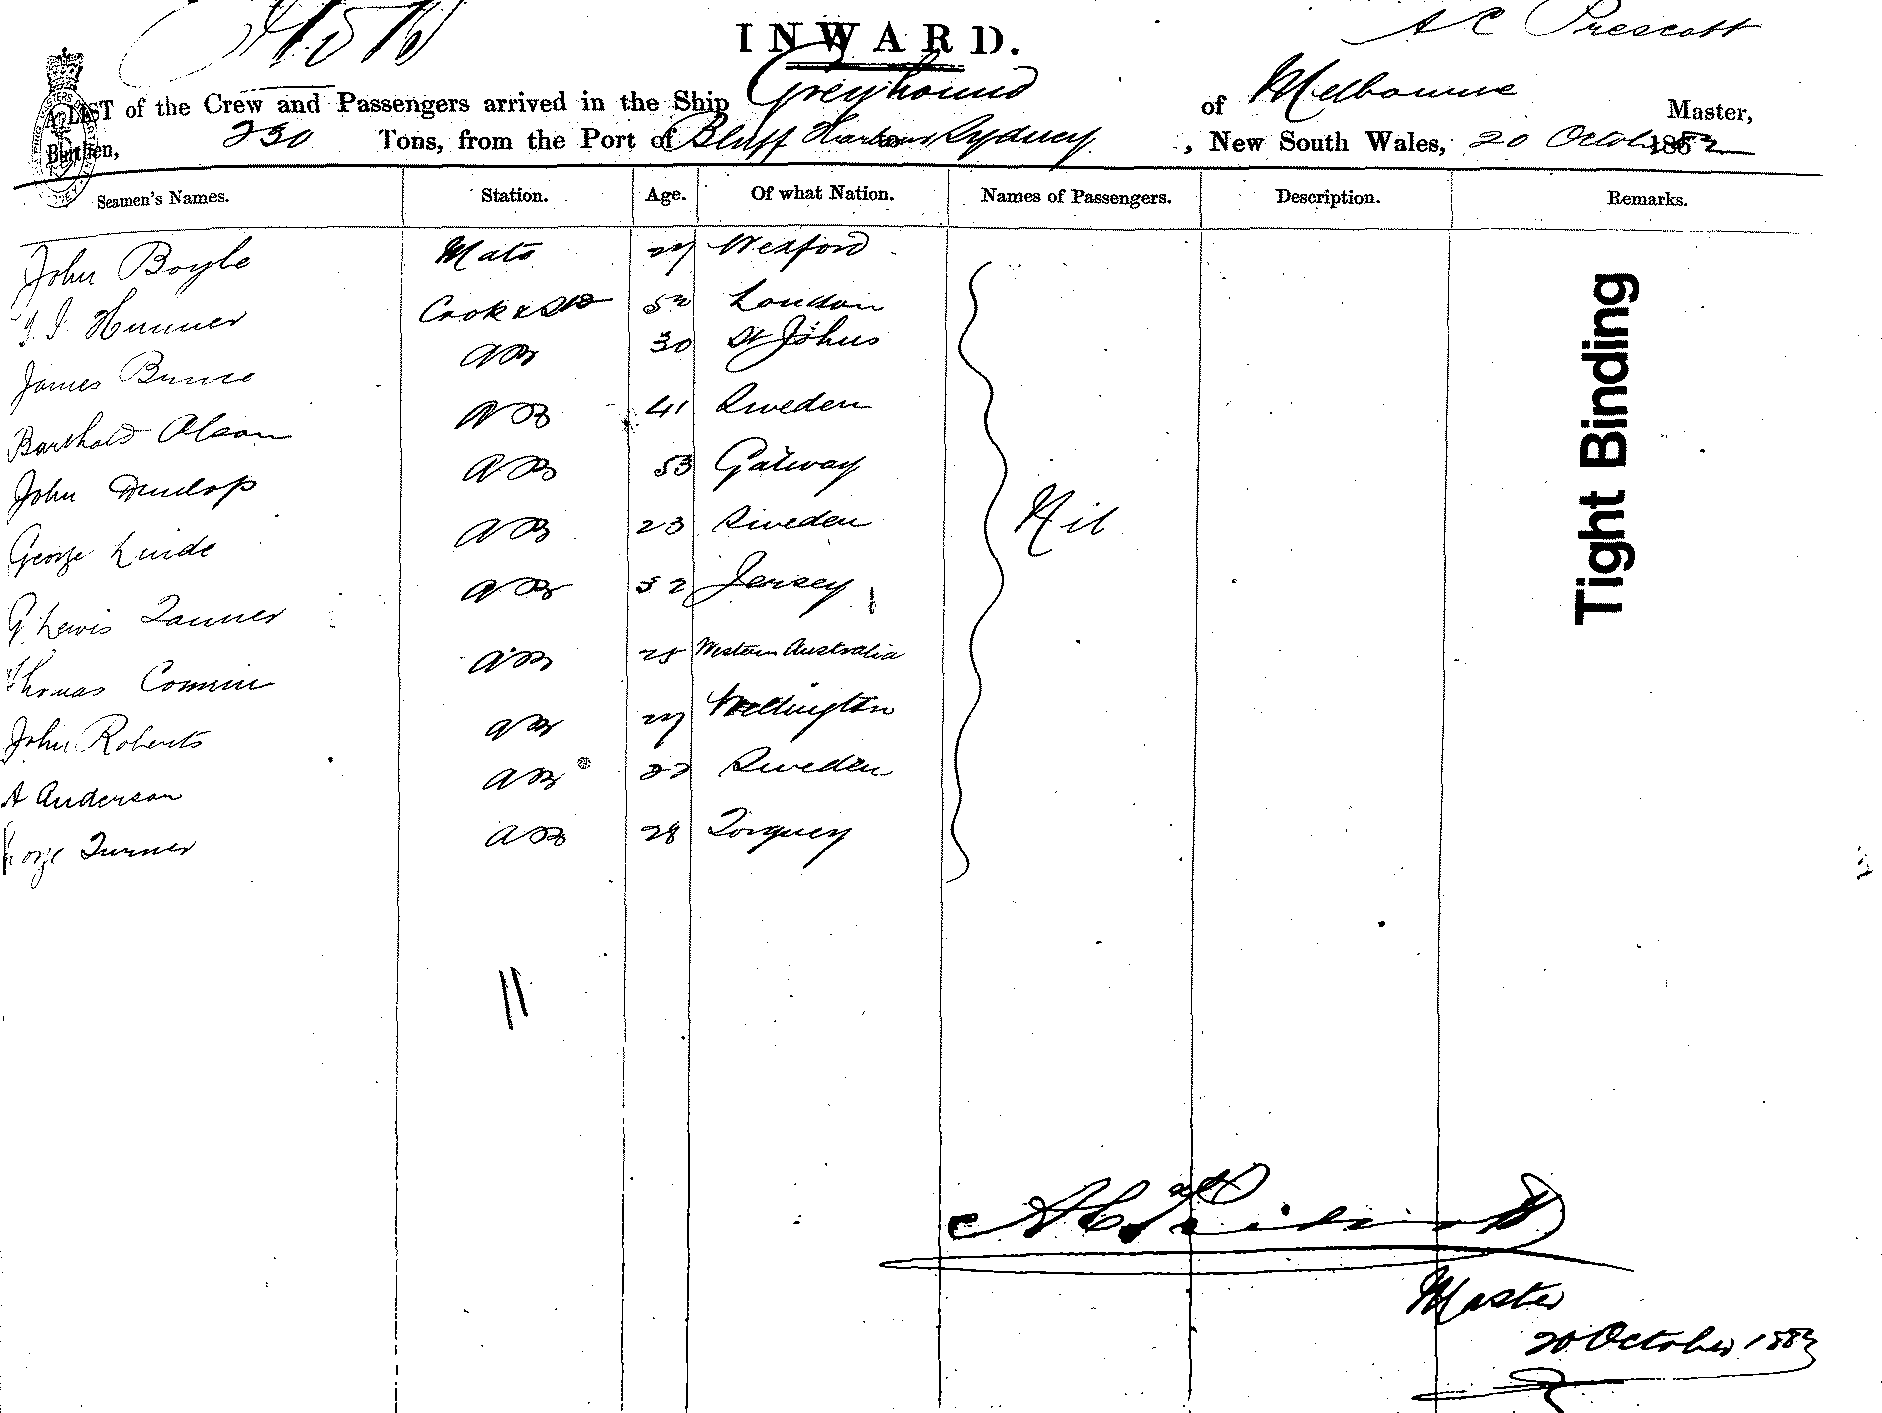 INWARD.
A C Prescott
A LIST of the Crew and Passengers arrived in the Ship Greyhound of Melbourne Master,
Burthen, 230 Tons, from the Port of Bluff Harbour Sydney, New South Wales, 20 October 1882
Seamen's Names. Station. Age. Of what Nation. Names of Passengers. Description. Remarks.
John Boyle Mate 27 Wexford
Cook & Std 52 London
James Bunce AB 30 St Johns
Barthold Olson AB 41 Sweden
John Dunlop AB 53 Galway
George Linde AB 23 Sweden
G. Lewis Tanner AB 32 Jersey
Thomas AB 25 Western Australia
John Roberts AB 27 Wellington
A Anderson AB Sweden
George Turner AB 28 Torquey
Nil
Tight Binding
11
Master
20 October 1882